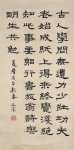 古人學問無遺力少壯功夫
老始成紙上得來終覺淺絕
知此事要躬行
共勉